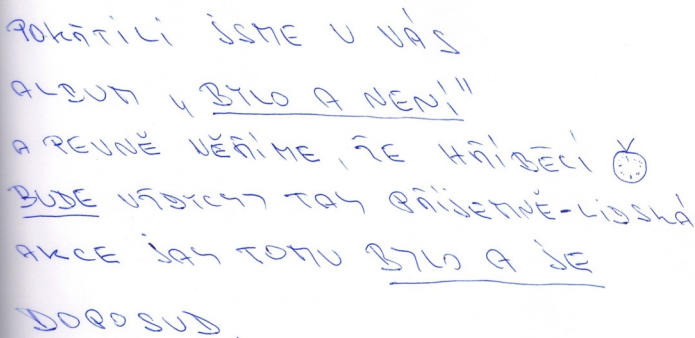 POKŘTILI JSME U VÁS
ALBUM „BYLO A NENÍ"
A PEVNĚ VĚŘÍME, ŽE HŘÍBĚCÍ
BUDE VŽDYCKY TAK PŘÍJEMNĚ-LIDSKÁ
AKCE JAK TOMU BYLO A JE
DOPOSUD